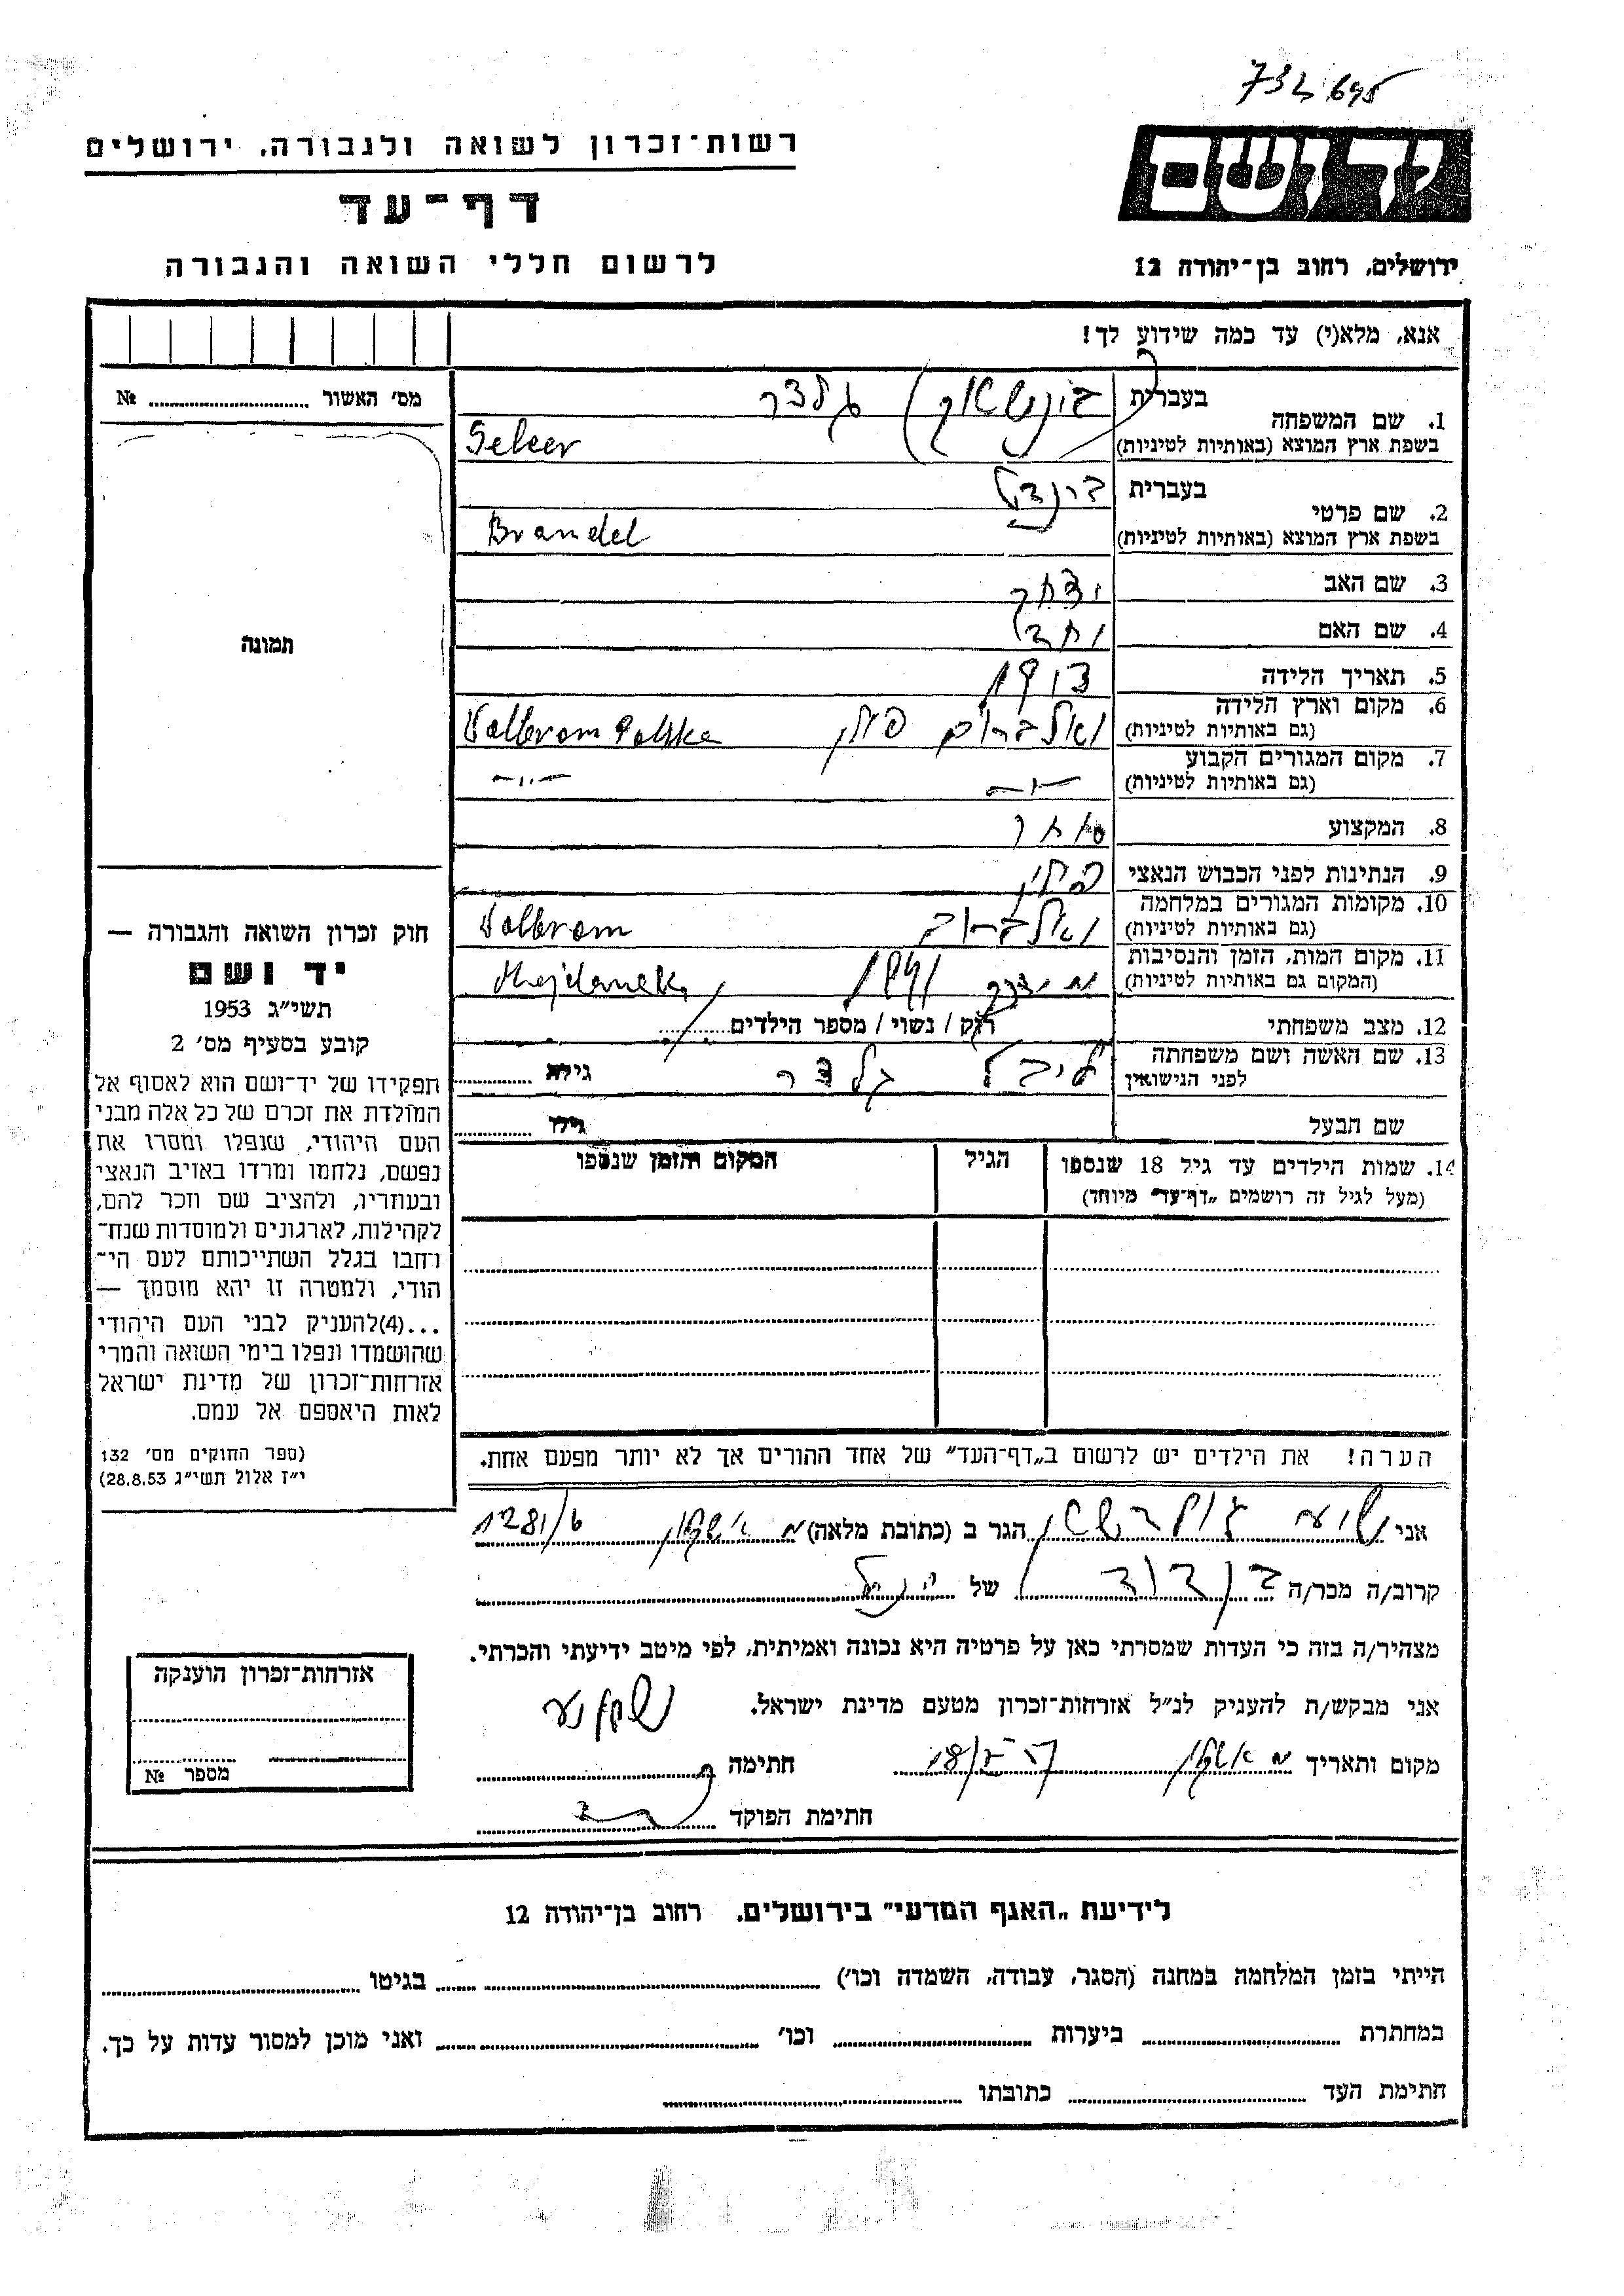 732 695
רשות־זכרון לשואה ולגבורה, ירושלים
יד ושם
דף־עד
לרשום חללי השואה והגבורה
ירושלים, רחוב בן־יהודה 12
אנא, מלא(י) עד כמה שידוע לך!
מס' האשור № 
1. שם המשפחה
בעברית גלצר
בשפת ארץ המוצא (באותיות לטיניות)
2. שם פרטי
בעברית ברנדל
בשפת ארץ המוצא (באותיות לטיניות) Brandel
3. שם האב יצחק
4. שם האם
תמונה
5. תאריך הלידה
6. מקום וארץ הלידה ואלברום פולין Volbrom Polska
(גם באותיות לטיניות)
7. מקום המגורים הקבוע -"- -"-
(גם באותיות לטיניות)
8. המקצוע סוחר
9. הנתינות לפני הכבוש הנאצי פולין
10. מקומות המגורים במלחמה Volbrom
(גם באותיות לטיניות)
11. מקום המות, הזמן והנסיבות Majdanek
(המקום גם באותיות לטיניות)
12. מצב משפחתי רוק / נשוי / מספר הילדים
13. שם האשה ושם משפחתה גלצר גילה
לפני הנישואין
שם הבעל גילו
14. שמות הילדים עד גיל 18 שנספו הגיל המקום והזמן שנספו
(מעל לגיל זה רושמים „דף־עד" מיוחד)
הערה! את הילדים יש לרשום ב„דף־העד" של אחד ההורים אך לא יותר מפעם אחת.
חוק זכרון השואה והגבורה —
יד ושם
תשי"ג 1953
קובע בסעיף מס' 2
תפקידו של יד־ושם הוא לאסוף אל
המולדת את זכרם של כל אלה מבני
העם היהודי, שנפלו ומסרו את
נפשם, נלחמו ומרדו באויב הנאצי
ובעוזריו, ולהציב שם וזכר להם,
לקהילות, לארגונים ולמוסדות שנח־
רבו בגלל השתייכותם לעם הי־
הודי, ולמטרה זו יהא מוסמך —
...(4)להעניק לבני העם היהודי
שהושמדו ונפלו בימי השואה והמרי
אזרחות־זכרון של מדינת ישראל
לאות היאספם אל עמם.
(ספר החוקים מס' 132
י"ז אלול תשי"ג 28.8.53)
אני הגר ב (כתובת מלאה) אשקלון 1281/6
קרוב/ה מכר/ה בן דוד של
מצהיר/ה בזה כי העדות שמסרתי כאן על פרטיה היא נכונה ואמיתית, לפי מיטב ידיעתי והכרתי.
אני מבקש/ת להעניק לנ"ל אזרחות־זכרון מטעם מדינת ישראל.
מקום ותאריך אשקלון חתימה
חתימת הפוקד
אזרחות־זכרון הוענקה
מספר №
לידיעת „האגף המדעי" בירושלים, רחוב בן־יהודה 12
הייתי בזמן המלחמה במחנה (הסגר, עבודה, השמדה וכו') בגיטו
במחתרת ביערות וכו' ואני מוכן למסור עדות על כך.
חתימת העד כתובתו